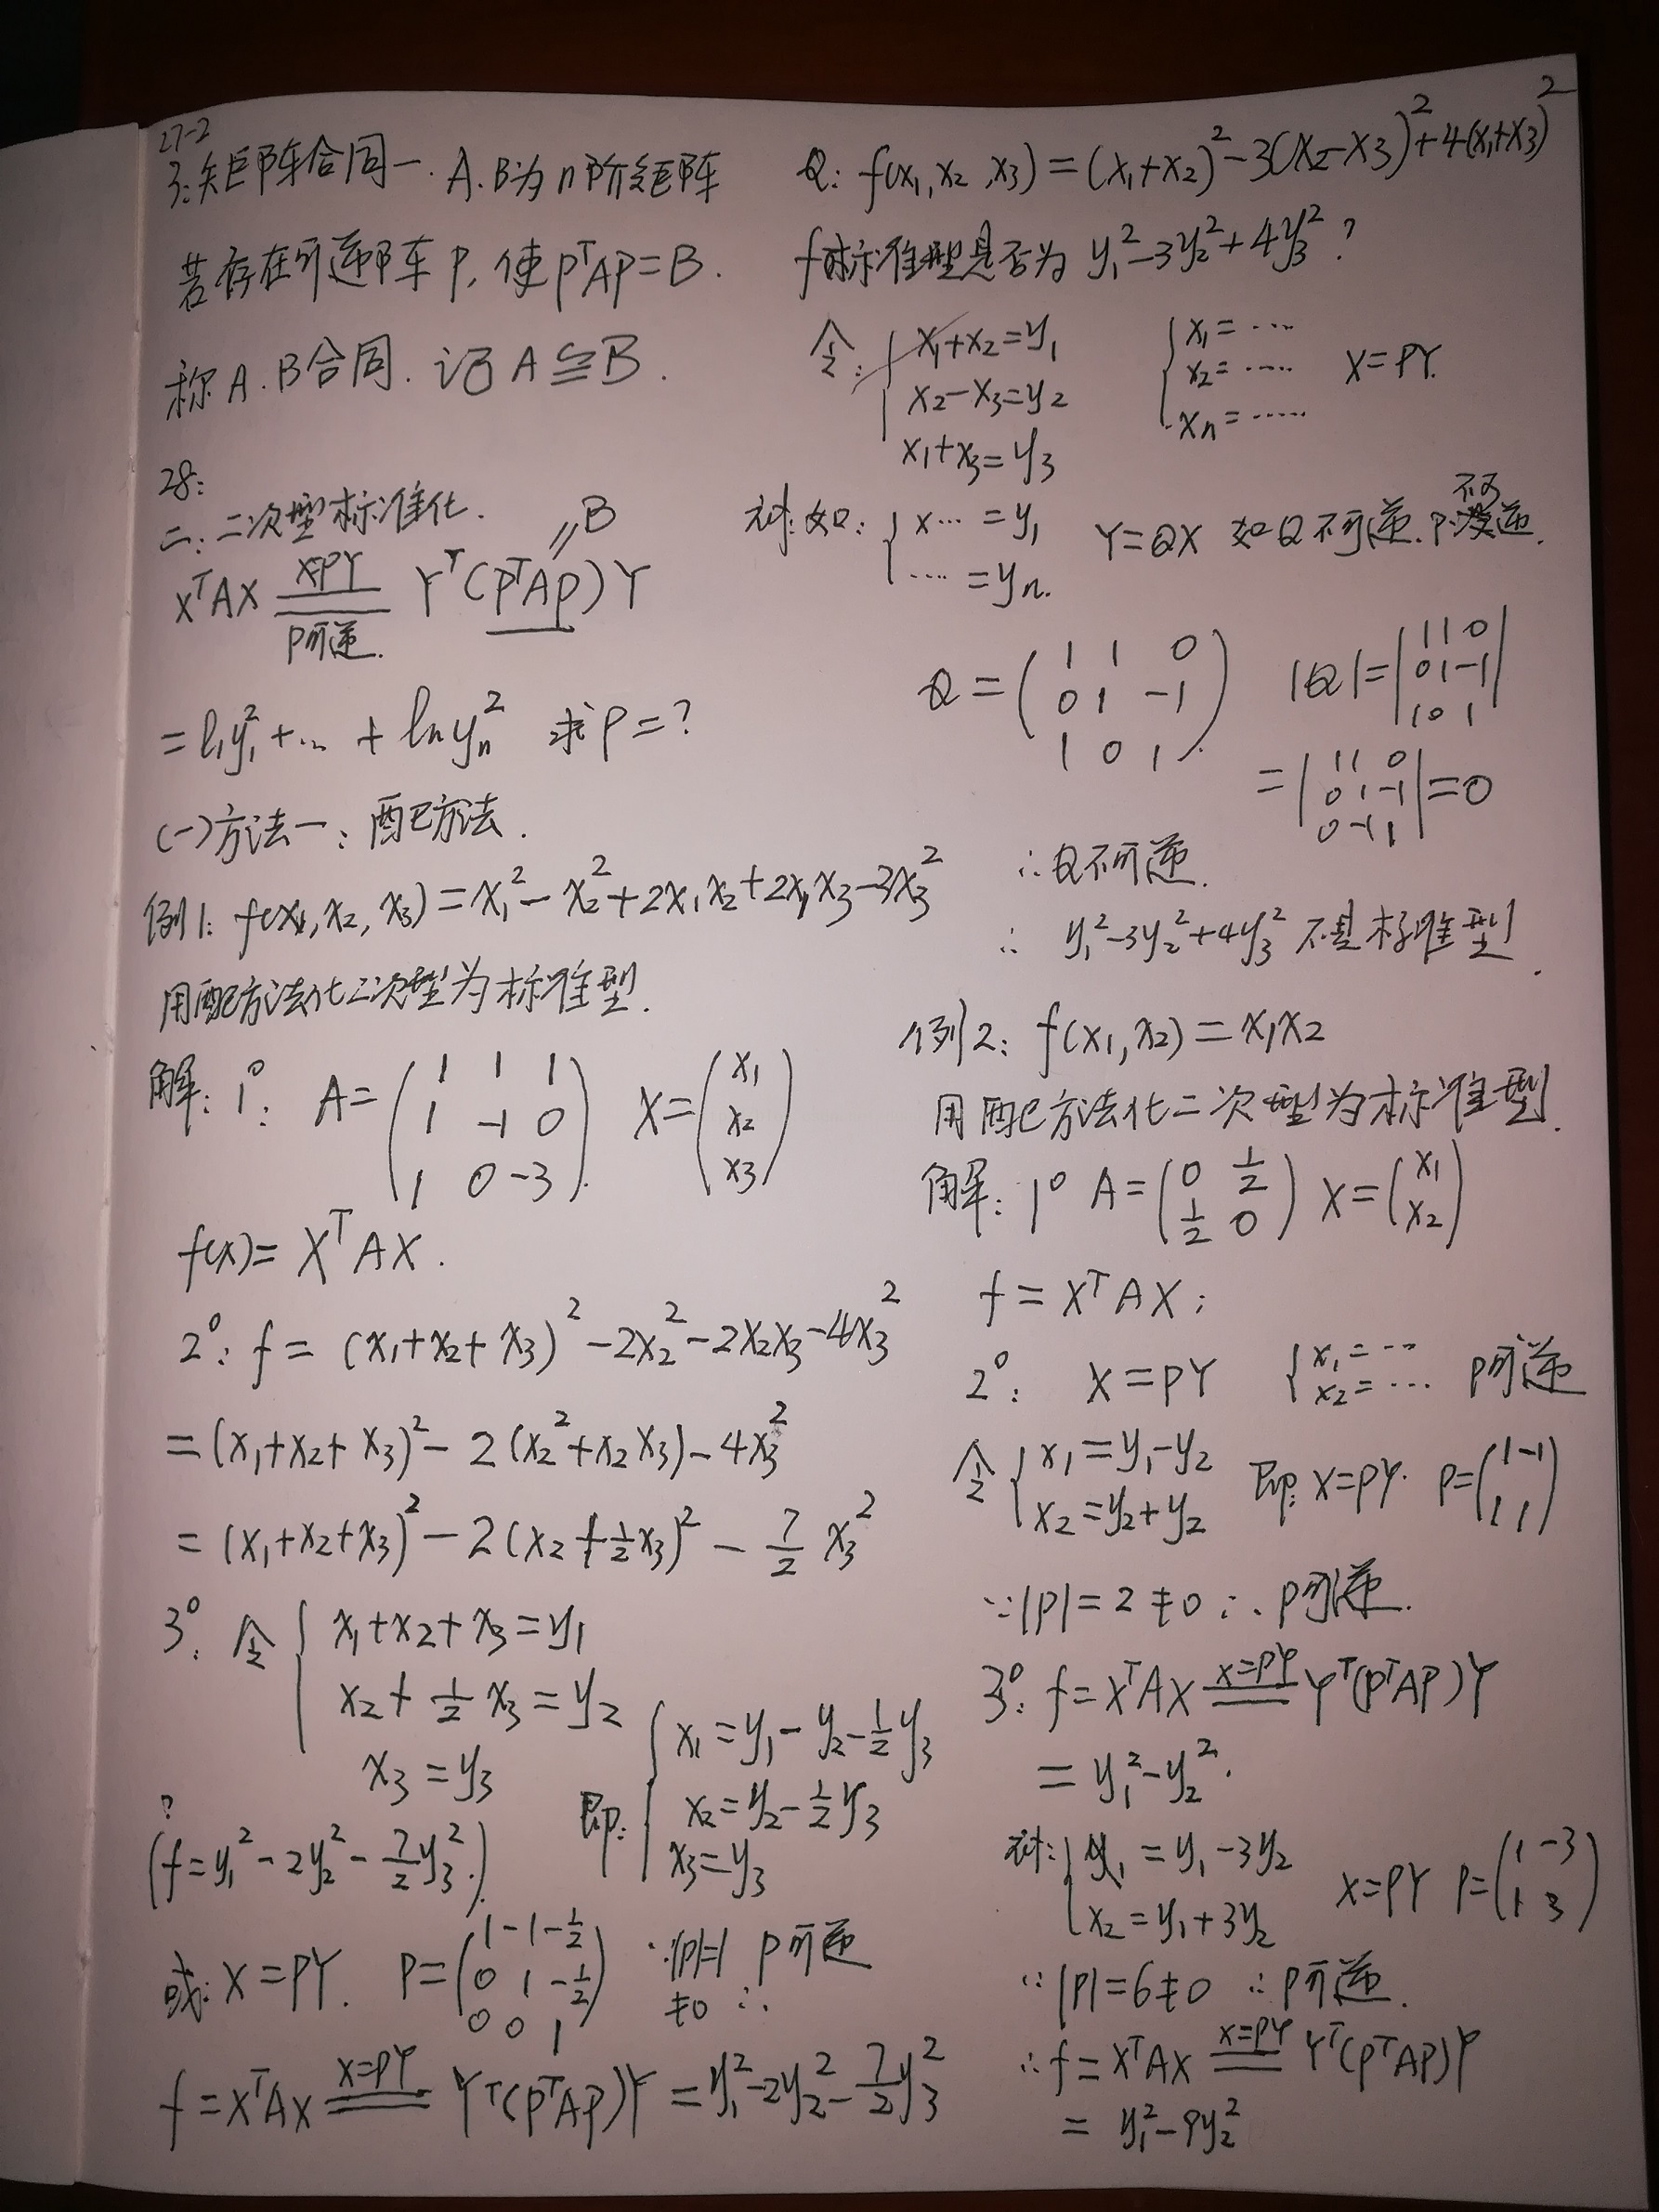 27-2
3:矩阵合同一. A.B为n阶矩阵
若存在可逆阵P, 使PᵀAP=B.
称A.B合同. 记A≌B.
28:
二:二次型标准化.
XᵀAX =(X=PY, P可逆.)= Yᵀ(PᵀAP)Y  〃B
=l₁y₁²+…+lₙyₙ² 求P=?
(一)方法一:配方法.
例1: f(x₁,x₂,x₃)=x₁²-x₂²+2x₁x₂+2x₁x₃-3x₃²
用配方法化二次型为标准型.
解: 1°: A=(1 1 1; 1 -1 0; 1 0 -3) X=(x₁; x₂; x₃)
f(x)=XᵀAX.
2°: f=(x₁+x₂+x₃)²-2x₂²-2x₂x₃-4x₃²
=(x₁+x₂+x₃)²-2(x₂²+x₂x₃)-4x₃²
=(x₁+x₂+x₃)²-2(x₂+½x₃)²-7/2 x₃²
3°: 令{x₁+x₂+x₃=y₁
x₂+½x₃=y₂
x₃=y₃
即:{x₁=y₁-y₂-½y₃
x₂=y₂-½y₃
x₃=y₃
?
(f=y₁²-2y₂²-7/2 y₃².)
或: X=PY. P=(1 -1 -½; 0 1 -½; 0 0 1) ∵|P|=1≠0 ∴ P可逆
f=XᵀAX =(X=PY)= Yᵀ(PᵀAP)Y=y₁²-2y₂²-7/2 y₃²
Q: f(x₁,x₂,x₃)=(x₁+x₂)²-3(x₂-x₃)²+4(x₁+x₃)²
f标准型是否为 y₁²-3y₂²+4y₃²?
令:{x₁+x₂=y₁
x₂-x₃=y₂
x₁+x₃=y₃
{x₁=….
x₂=…..
xₙ=……
X=PY.
如:{x…=y₁
….=yₙ.
Y=QX 如Q不可逆. P不可逆.
Q=(1 1 0; 0 1 -1; 1 0 1). |Q|=|1 1 0; 0 1 -1; 1 0 1|
=|1 1 0; 0 1 -1; 0 -1 1|=0
∴Q不可逆.
∴ y₁²-3y₂²+4y₃² 不是标准型.
例2: f(x₁,x₂)=x₁x₂
用配方法化二次型为标准型.
解: 1° A=(0 ½; ½ 0) X=(x₁; x₂)
f=XᵀAX;
2°: X=PY {x₁=…
x₂=… P可逆
令{x₁=y₁-y₂
x₂=y₂+y₂
即: X=PY. P=(1 -1; 1 1)
∵|P|=2≠0 ∴ P可逆.
3°: f=XᵀAX =(X=PY)= Yᵀ(PᵀAP)Y
=y₁²-y₂².
{x₁=y₁-3y₂
x₂=y₁+3y₂
X=PY P=(1 -3; 1 3)
∵|P|=6≠0 ∴P可逆.
∴f=XᵀAX =(X=PY)= Yᵀ(PᵀAP)Y
=y₁²-9y₂²